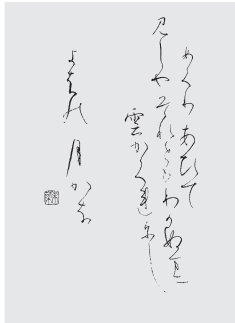 めくりあひて
見しやそれともわかぬまに
雲かくれにし
よはの月かな